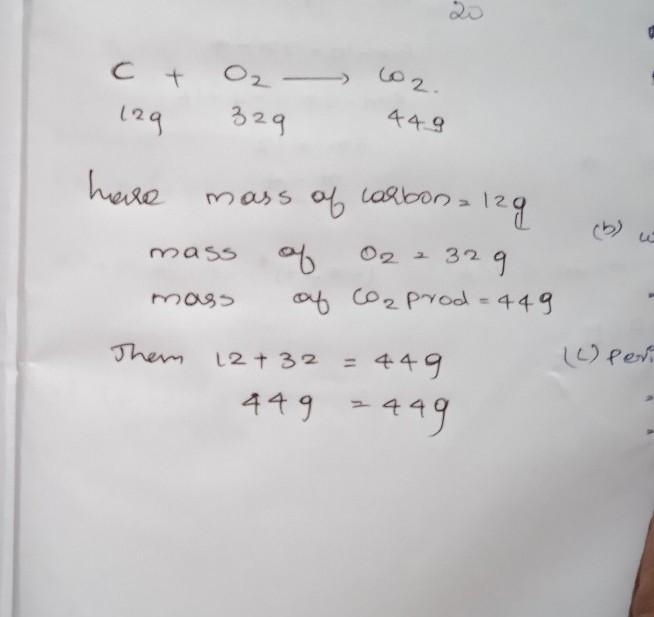 20
C + O2 → CO2.
12g 32g 44g
here mass of carbon = 12g
mass of O2 = 32 g
(b)
mass of CO2 prod = 44g
Them 12+32 = 44g
(c)
44g = 44g